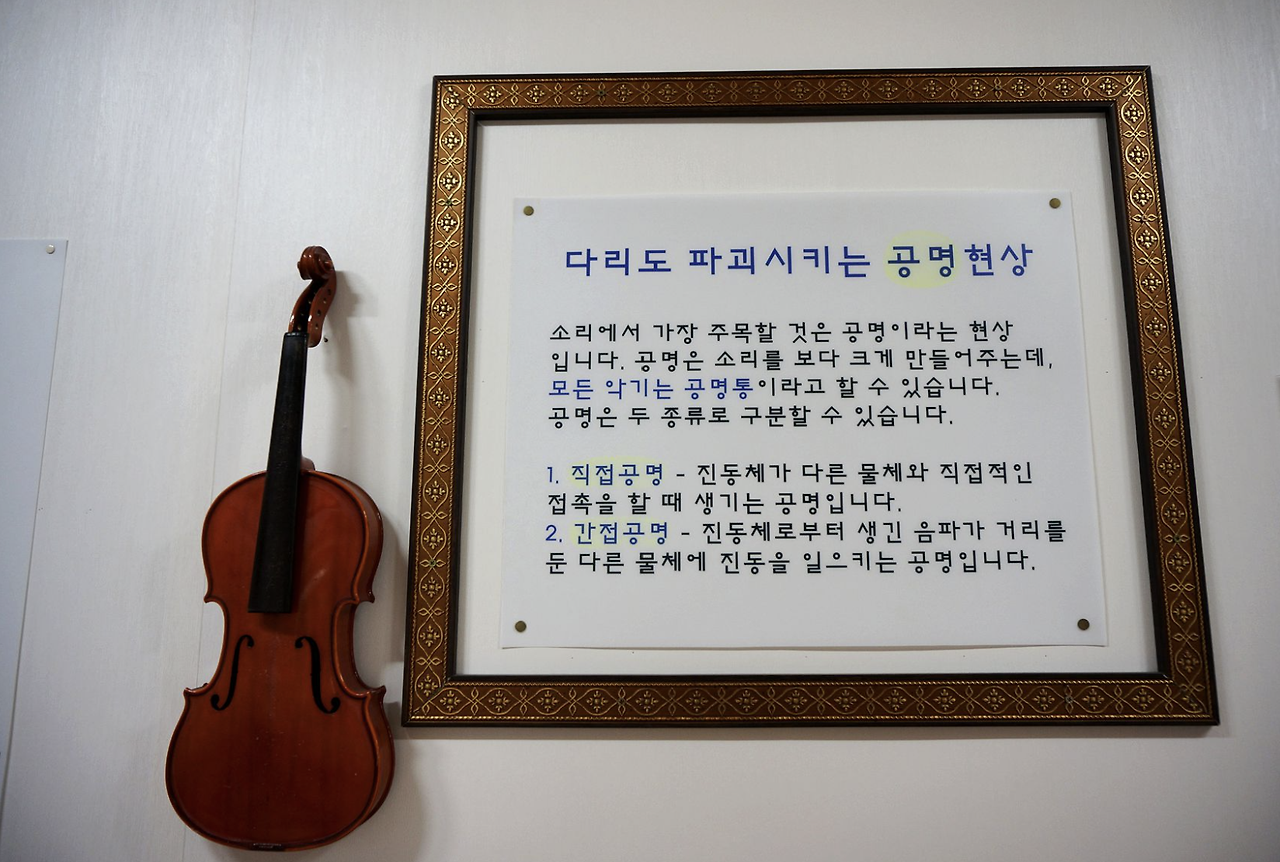 다리도 파괴시키는 공명현상
소리에서 가장 주목할 것은 공명이라는 현상
입니다. 공명은 소리를 보다 크게 만들어주는데,
모든 악기는 공명통이라고 할 수 있습니다.
공명은 두 종류로 구분할 수 있습니다.
1. 직접공명 - 진동체가 다른 물체와 직접적인
접촉을 할 때 생기는 공명입니다.
2. 간접공명 - 진동체로부터 생긴 음파가 거리를
둔 다른 물체에 진동을 일으키는 공명입니다.